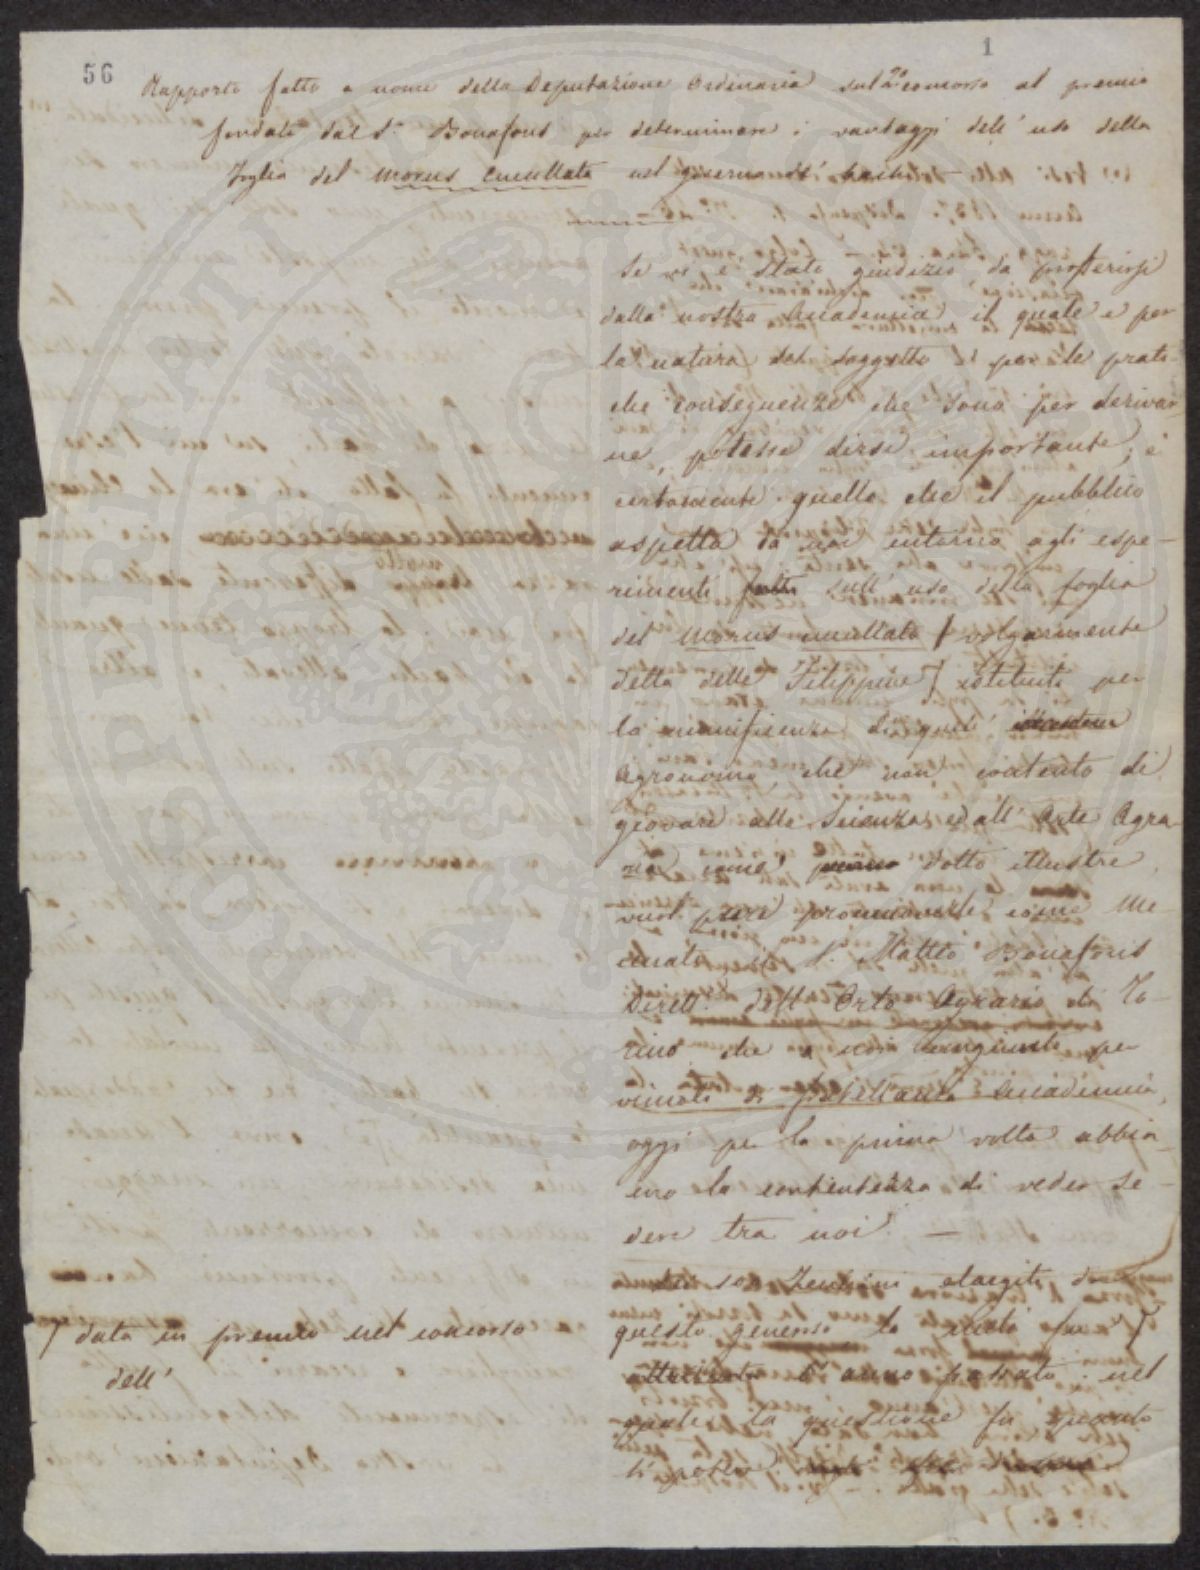 56
1
Rapporto fatto a nome della Deputazione Ordinaria sul 2º concorso al premio
fondato dal S.r Bonafous per determinare i vantaggi dell' uso della
Foglia del Morus Cucullata nel governo de' bachi
Se vi è stato giudizio da profferirsi
dalla nostra Accademia il quale e per
la natura del soggetto e per le prati-
che conseguenze che sono per derivar-
ne, potesse dirsi importante, è
certamente quello che il pubblico
aspetta da noi intorno agli espe-
rimenti fatti sull' uso della foglia
del Morus cucullata ( volgarmente
detta delle Filippine) istituiti per
la munificenza di quel
Agronomo, che non contento di
giovare alla Scienza ed all' Arte Agra-
ria come dotto illustre,
vuol pure promuoverle come Me-
cenate il S. Matteo Bonafous
Dirett. dell' Orto Agrario di To-
rino che a noi congiunto per
vincoli di fratellanza Accademica,
oggi per la prima volta abbia-
mo la contentezza di veder se-
dere tra noi. —
zecchini elargiti da
questo generoso la metà fu
7 data in premio nel concorso
dell'
l' anno passato nel
quale la questione fu quanto